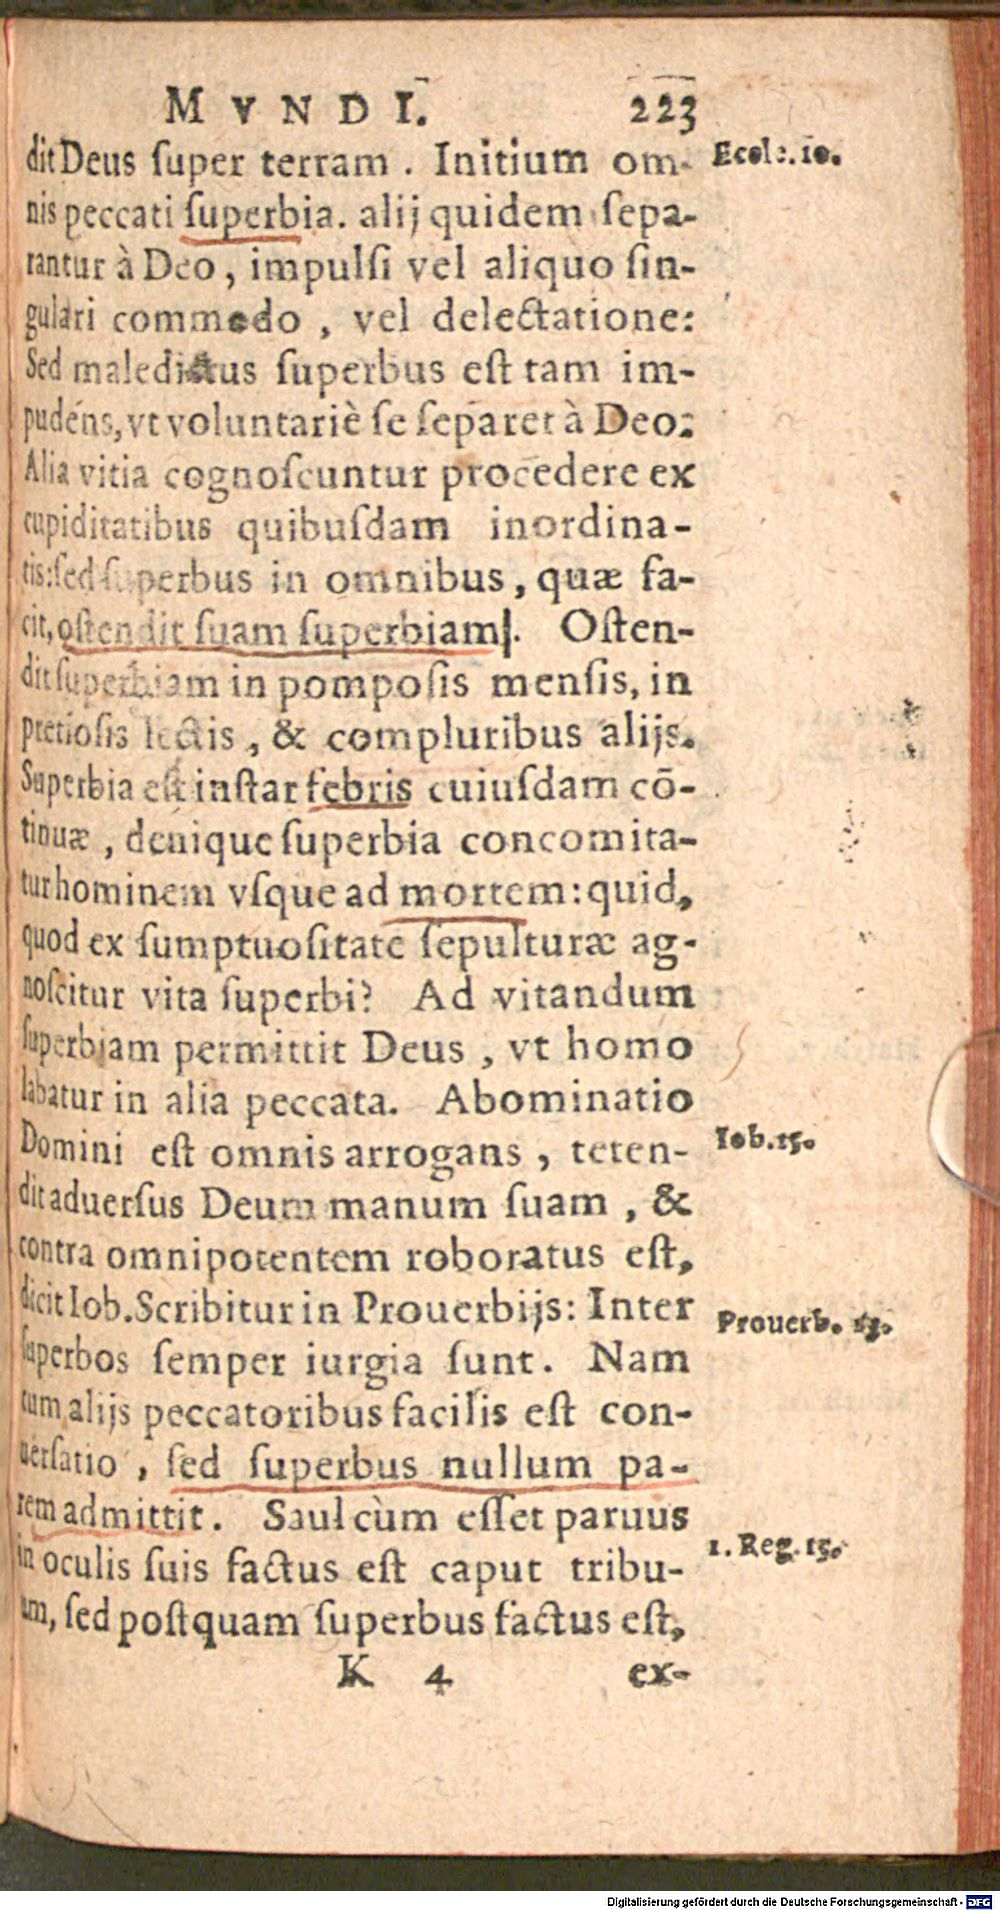 MVNDI. 223
ditDeus ſuper terram. Initium om- Eccle. 10.
nis peccati ſuperbia. alij quidem ſepa-
rantur à Deo, impulſi vel aliquo ſin-
gulari commodo, vel delectatione:
Sed maledictus ſuperbus eſt tam im-
pudens, vt voluntariè ſe ſeparet à Deo:
Alia vitia cognoſcuntur procedere ex
cupiditatibus quibuſdam inordina-
tis: ſed ſuperbus in omnibus, quæ fa-
cit, oſtendit ſuam ſuperbiam. Oſten-
dit ſuperbiam in pompoſis menſis, in
pretioſis lectis, & compluribus alijs.
Superbia eſt inſtar febris cuiuſdam cō-
tinuæ, denique ſuperbia concomita-
tur hominem vſque ad mortem: quid,
quod ex ſumptuoſitate ſepulturæ ag-
noſcitur vita ſuperbi? Ad vitandum
ſuperbiam permittit Deus, vt homo
labatur in alia peccata. Abominatio
Domini eſt omnis arrogans, teten- Iob. 15.
dit aduerſus Deum manum ſuam, &
contra omnipotentem roboratus eſt,
dicit Iob. Scribitur in Prouerbijs: Inter Prouerb. 13.
ſuperbos ſemper iurgia ſunt. Nam
cum alijs peccatoribus facilis eſt con-
uerſatio, ſed ſuperbus nullum pa-
rem admittit. Saul cùm eſſet paruus
in oculis ſuis factus eſt caput tribu- 1. Reg. 15.
um, ſed poſtquam ſuperbus factus eſt,
K 4 ex-
Digitalisierung gefördert durch die Deutsche Forschungsgemeinschaft - DFG